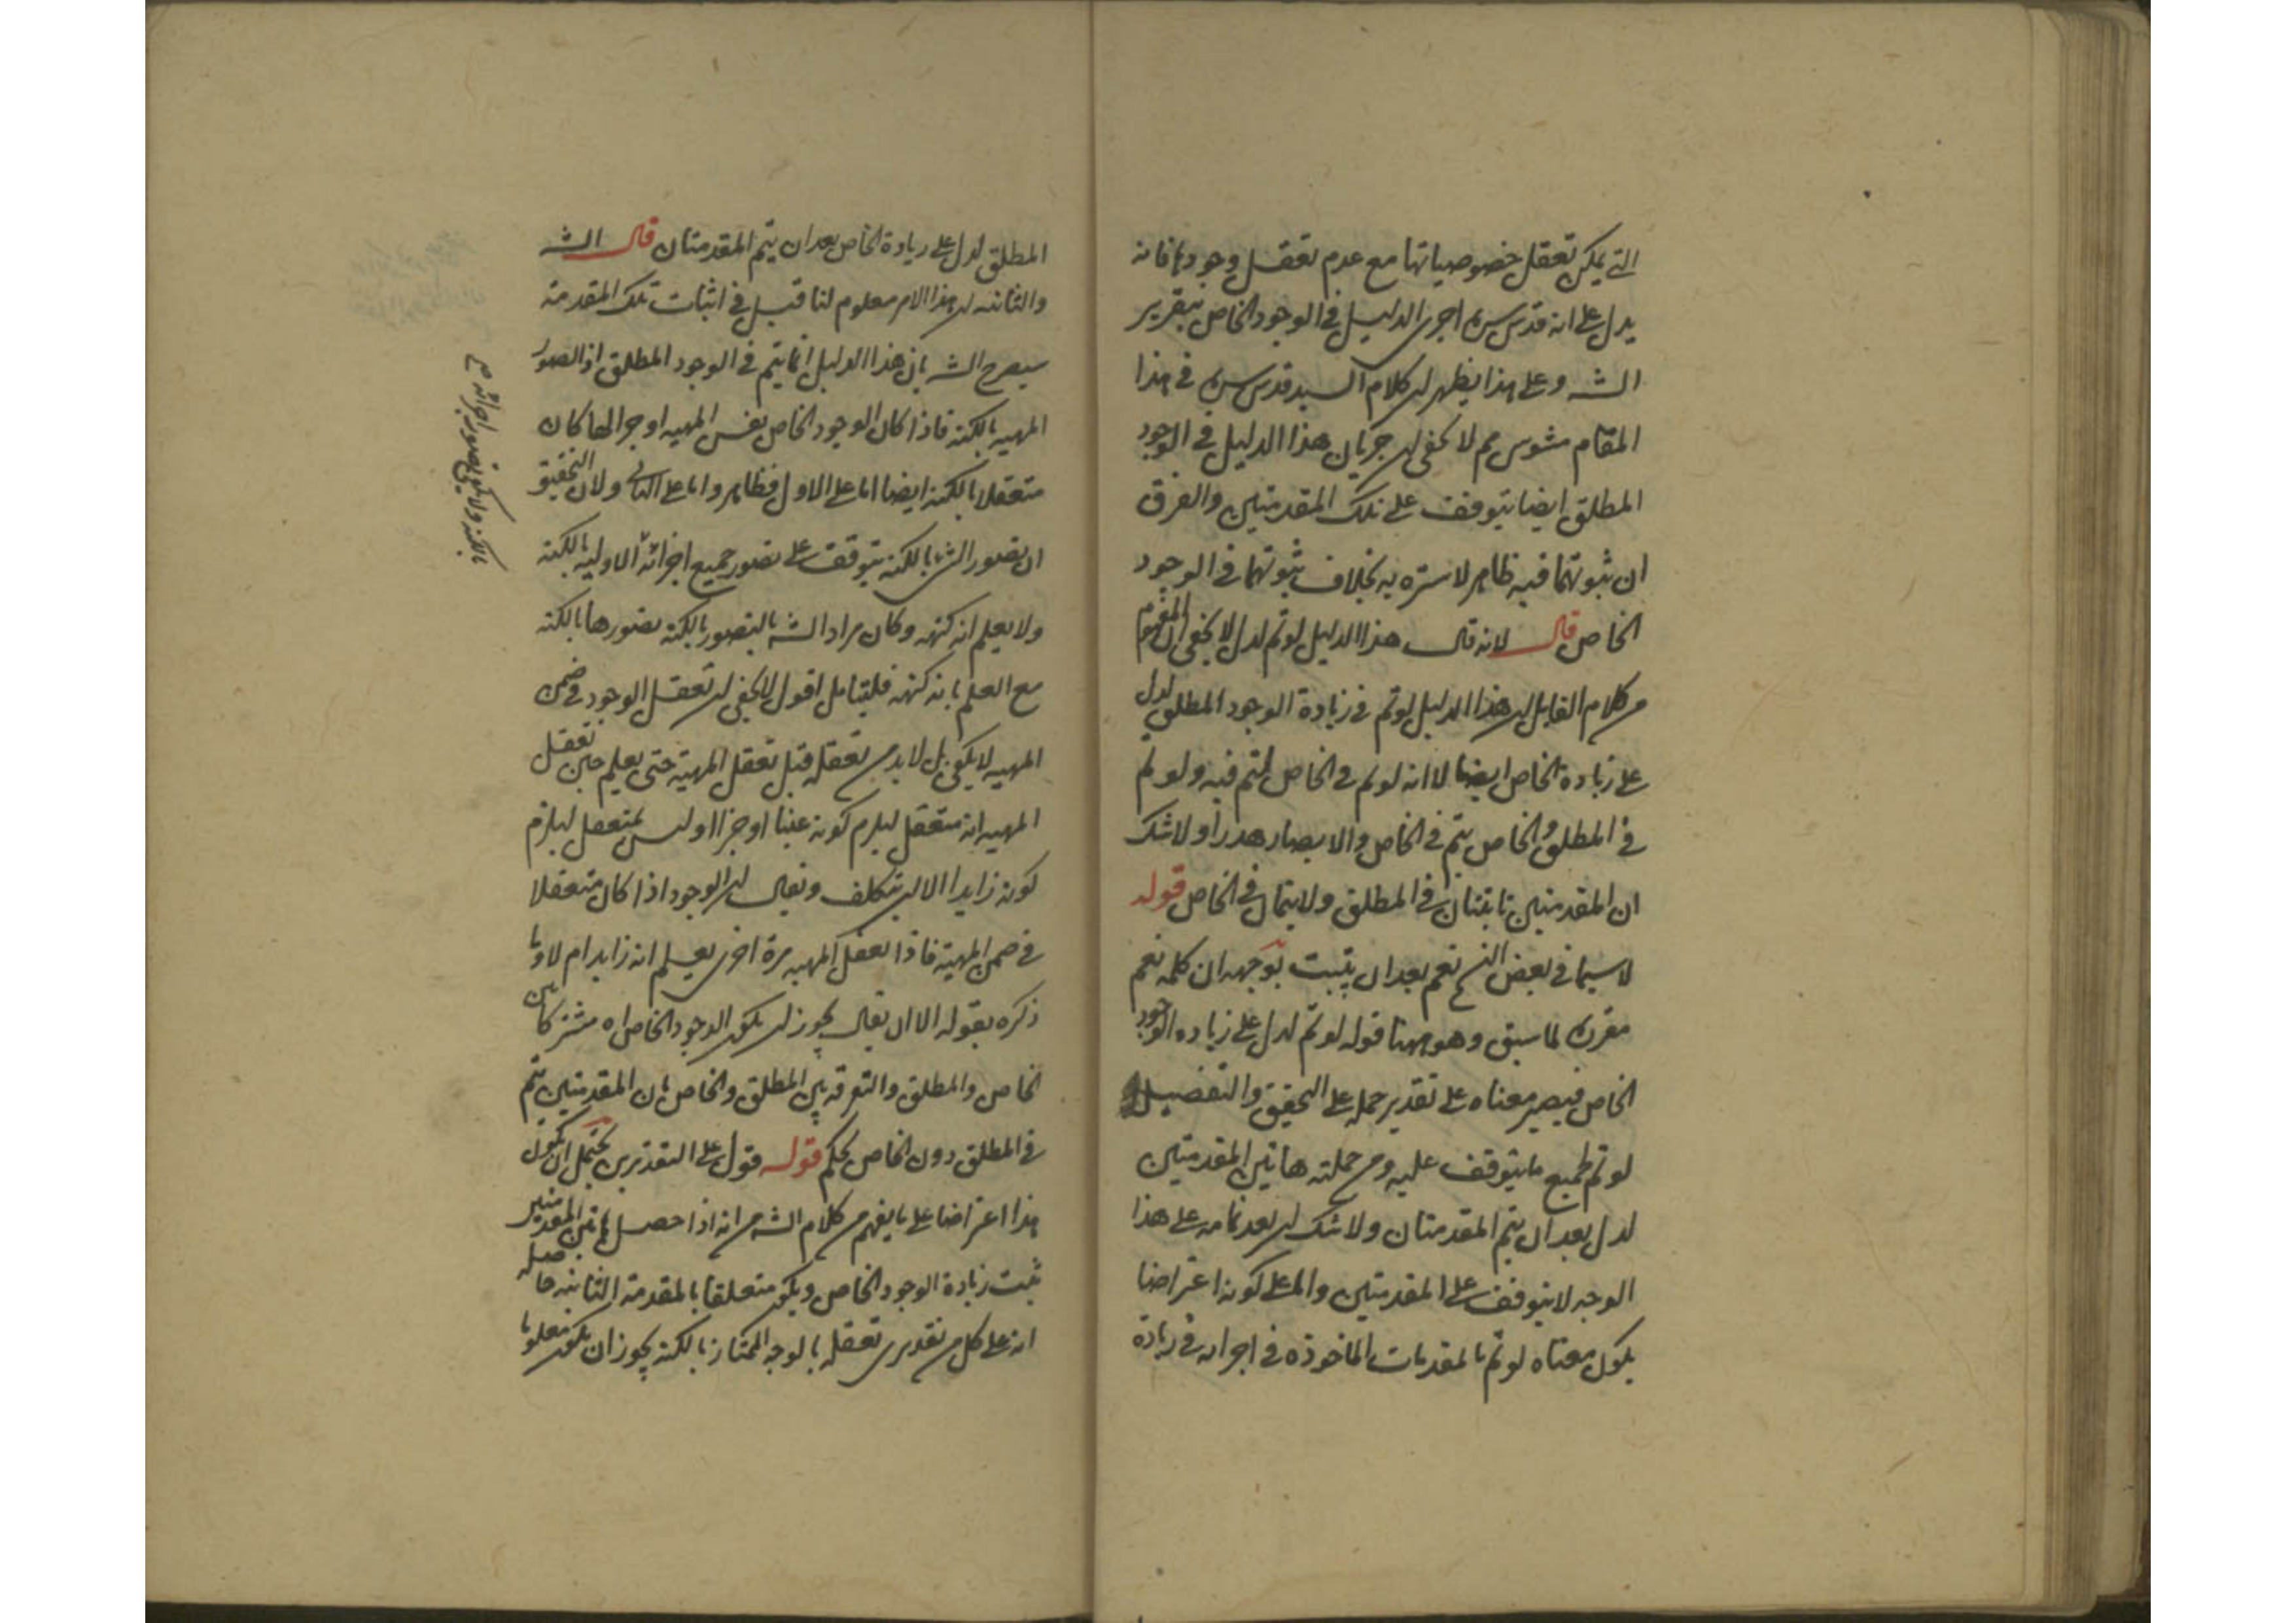 التى يمكن تعقل خصوصياتها مع عدم تعقل وجودها فانه
يدل على انه قدس سره اجرى الدليل فى الوجود الخاص بتقرير
الشه وعلى هذا يظهر ان كلام السيد قدس سره فى هذا
المقام مشوش ثم لا يخفى ان جريان هذا الدليل فى الوجود
المطلق ايضا يتوقف على تلك المقدمتين والفرق
ان ثبوتهما فيه ظاهر لا سترة به بخلاف ثبوتهما فى الوجود
الخاص قال لانه قال هذا الدليل لو تم لدل لا يخفى ان المفهوم
من كلام القايل ان هذا الدليل لو تم فى زيادة الوجود المطلق لدل
على زيادة الخاص ايضا لا انه لو تم فى الخاص لتم فيه ولو تم
فى المطلق والخاص يتم فى الخاص والا يصار هدرا ولا شك
ان المقدمتين ثابتتان فى المطلق ولا يتمان فى الخاص قوله
لا سيما فى بعض النسخ نعم بعد ان يثبت توجهه ان كلمة نعم
مقرن لما سبق وهو ههنا قوله لو تم لدل على زياده الوجود
الخاص فيصير معناه على تقدير حمله على التحقيق والتفصيل
لو تم لجميع ما يتوقف عليه ومن جملته هاتين المقدمتين
لدل بعد ان يتم المقدمتان ولا شك ان بعد تمامه على هذا
الوجه لا يتوقف على المقدمتين واما على كونه اعتراضا
يكون معناه لو تم بالمقدمات الماخوذه فى اجرائه فى زيادة
المطلق لدل على زيادة الخاص بعد ان يتم المقدمتان قال الشه
والثانيه ان هذا الامر معلوم لنا قبل فى اثبات تلك المقدمة
سيصرح الشه بان هذا الدليل انما يتم فى الوجود المطلق اذا تصور
المهيه بالكنه فاذا كان الوجود الخاص نفس المهيه او جزءها كان
متعقلا بالكنه ايضا اما على الاول فظاهر واما على الثانى ولان التحقيق
ان تصور الشئ بالكنه يتوقف على تصور جميع اجزائه الاوليه بالكنه
ولا يعلم انه كنهه وكان مراد الشه بالتصور بالكنه تصورها بالكنه
مع العلم بانه كنهه فليتامل اقول لا يخفى ان تعقل الوجود فى ضمن
المهيه لا يكفى بل لا بد من تعقله قبل تعقل المهية حتى يعلم حين تعقل
المهيه انه متعقل ليلزم كونه عينا او جزءا او ليس بمتعقل ليلزم
كونه زايدا الا ان يتكلف ويقال ان الوجود اذا كان متعقلا
فى ضمن المهية فاذا تعقل المهيه مرة اخرى يعلم انه زايد ام لا وما
ذكره بقوله الا ان يقال يجوز ان يكون الوجود الخاص اه مشترك بين
الخاص والمطلق والتفرقه بين المطلق والخاص بان المقدمتين يتم
فى المطلق دون الخاص تحكم قوله قول على التقديرين يحتمل ان يكون
هذا اعتراضا على ما يفهم من كلام الشه من انه اذا حصل هاتين المقدمتين
ثبت زيادة الوجود الخاص ويكون متعلقا بالمقدمة الثانيه حاصله
انه على كل من تقديرى تعقله بالوجه الممتاز بالكنه يجوز ان يكون معلوما